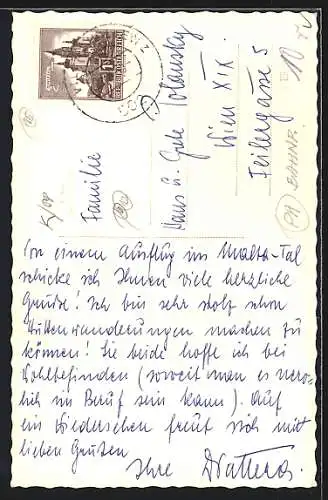 Familie
Hans u. Grete
Wien XIX.
Feilergasse 5
Von einem Ausflug ins Malta-Tal
schicke ich Ihnen viele herzliche
Grüsse! Ich bin sehr stolz schon
Hüttenwanderungen machen zu
können! Sie beide hoffe ich bei
Wohlbefinden (soweit man es nerv-
lich im Beruf sein kann). Auf
ein Wiedersehen freut sich mit
lieben Grüssen
Ihre
10